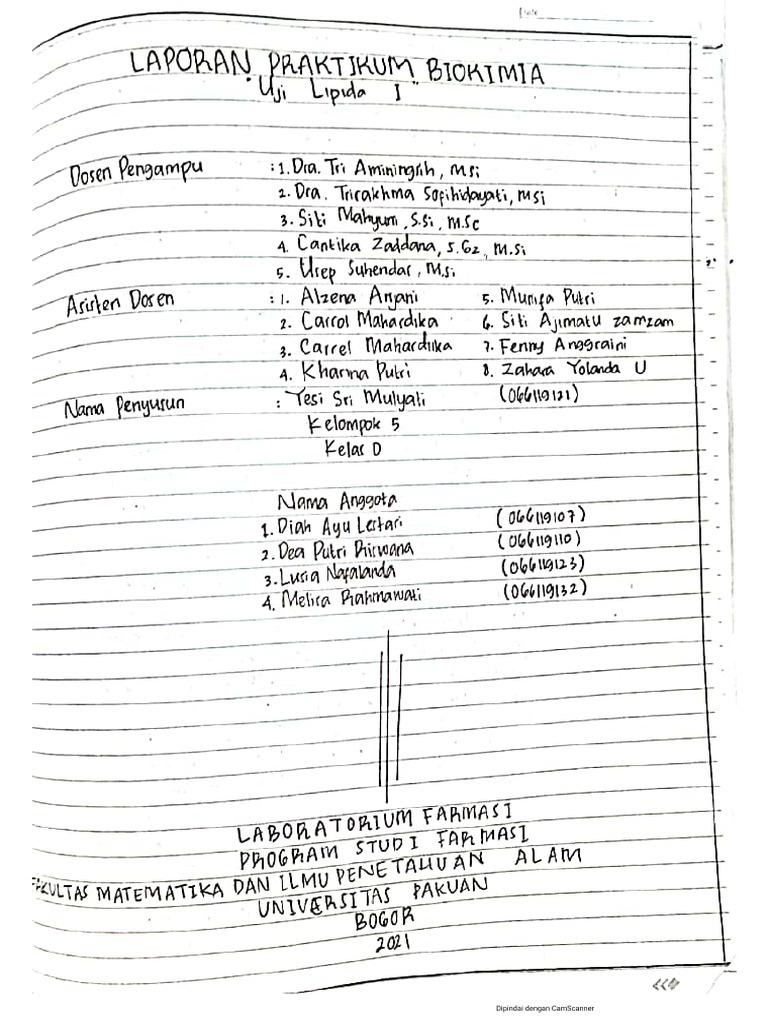 Date
LAPORAN PRAKTIKUM BIOKIMIA
"Uji Lipida I"
Dosen Pengampu : 1. Dra. Tri Aminingsih, Msi
2. Dra. Trirakhma Sofihidayati, Msi
3. Siti Mahyuni, S.Si, M.Sc
4. Cantika Zaddana, S.Gz, M.Si
5. Usep Suhendar, M.Si
Asisten Dosen : 1. Alzena Anjani 5. Munifa Putri
2. Carrol Mahardika 6. Siti Ajimatu zamzam
3. Carrel Mahardika 7. Fenny Anggraini
4. Kharina Putri 8. Zahara Yolanda U
Nama Penyusun : Yesi Sri Mulyati (066119121)
Kelompok 5
Kelas D
Nama Anggota
1. Diah Ayu Lestari (066119107)
2. Dea Putri Dirwana (066119110)
3. Lusia Nafalanda (066119123)
4. Melisa Rahmawati (066119132)
LABORATORIUM FARMASI
PROGRAM STUDI FARMASI
FAKULTAS MATEMATIKA DAN ILMU PENETAHUAN ALAM
UNIVERSITAS PAKUAN
BOGOR
2021
Dipindai dengan CamScanner